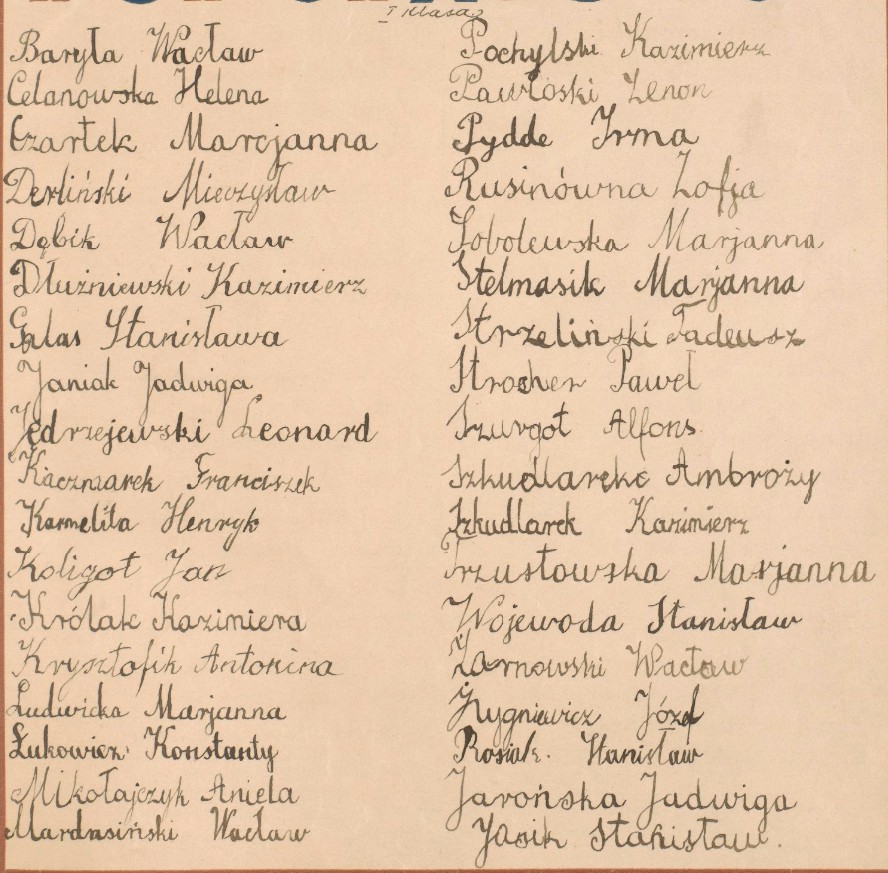 I Klasa
Baryła Wacław
Celanowska Helena
Czartek Marcjanna
Derliński Mieczysław
Dębik Wacław
Dłużniewski Kazimierz
Galas Stanisława
Janiak Jadwiga
Jędrzejewski Leonard
Kaczmarek Franciszek
Karmelita Henryk
Koligot Jan
Królak Kazimiera
Krysztofik Antonina
Ludwicka Marjanna
Łukowicz Konstanty
Mikołajczyk Aniela
Mardasiński Wacław
Pochylski Kazimierz
Pawłoski Zenon
Pydde Irma
Rusinówna Zofja
Sobolewska Marjanna
Stelmasik Marjanna
Strzeliński Tadeusz
Strocher Paweł
Szurgot Alfons
Ambroży
Szkudlarek Kazimierz
Trzustowska Marjanna
Wojewoda Stanisław
Żarnowski Wacław
Zygniewicz Józef
Rosiak. Stanisław
Jarońska Jadwiga
Jasik Stanisław.